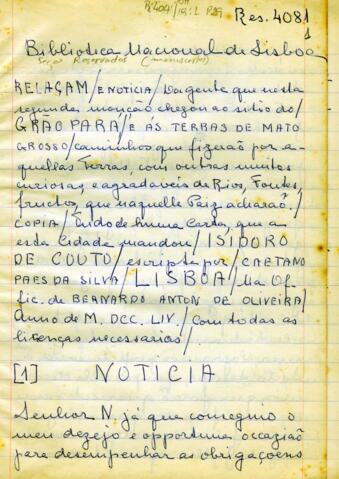 Res. 4081
1
Biblioteca Nacional de Lisboa
Secção Reservados (manuscritos)
RELAÇAM / E NOTICIA / Da gente que nesta
segunda monção chegou ao sitio do /
GRÃO PARÁ / E ÁS TERRAS DE MATO
GROSSO / caminhos que fizerão por a-
quellas Terras, com outras muitas
curiosas, e agradaveis de Rios, Fontes,
fructos, que naquelle Paiz acharão. /
COPIA / Tudo de huma Carta, que a
esta Cidade mandou / ISIDORO
DE COUTO / escripta por / CAETANO
PAES DA SILVA / LISBOA / Na Of-
fic. de BERNARDO ANTON DE OLIVEIRA /
Anno de M. DCC. LIV. / Com todas as
licenças necessarias /.
[1] NOTICIA
Senhor N. já que conseguio o
meu dezejo e opportuna occazião
para desempenhar as obrigaçoens